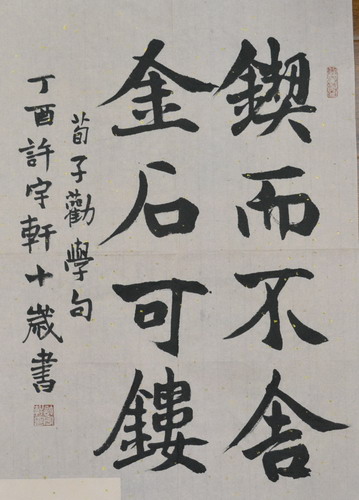 鍥而不舍
金石可鏤
荀子勸學句
丁酉許宇軒十歲書